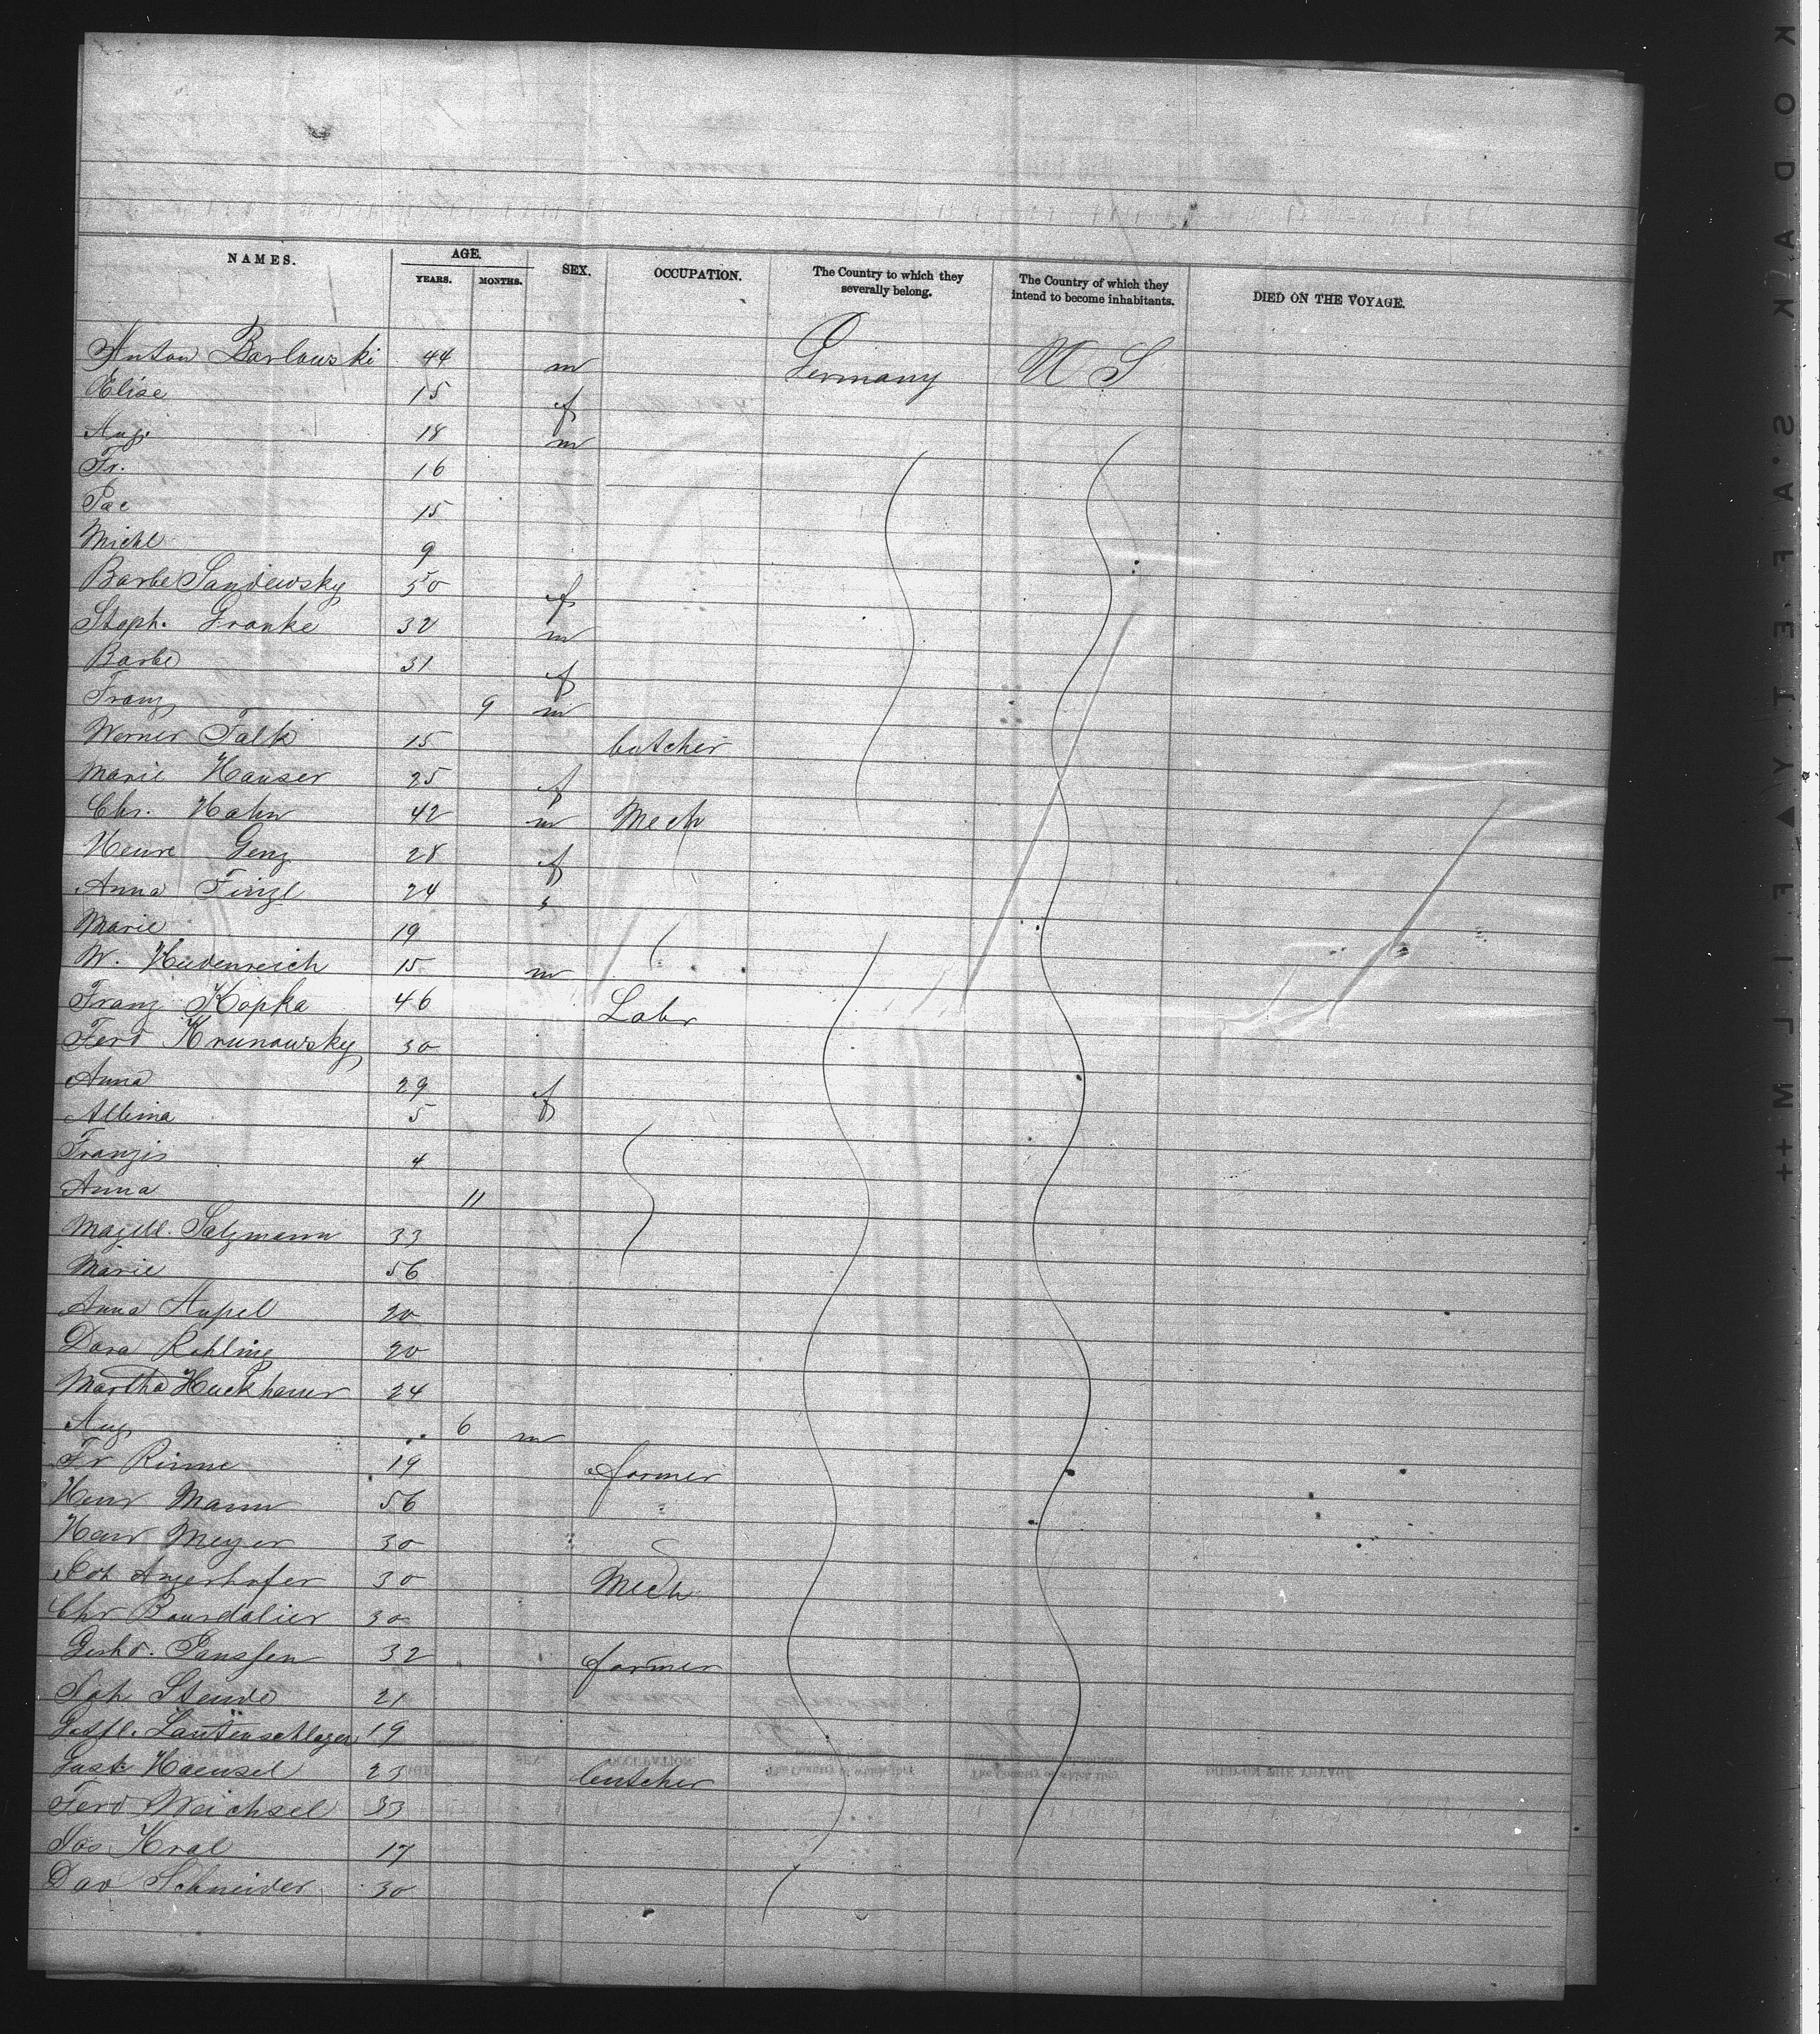 NAMES. AGE. YEARS. MONTHS. SEX. OCCUPATION. The Country to which they severally belong. The Country of which they intend to become inhabitants. DIED ON THE VOYAGE.
Anton Barlowski 44 m Germany U S
Elise 15 f
Aug. 18 m
Fr. 16
Jac 15
Michl 9
Barbe Sandewsky 50 f
Steph. Franke 32 m
Barbe 31 f
Franz 9 m
Werner Falk 15 butcher
Marie Hauser 25 f
Chr. Hahn 42 m Mech
Henre Genz 28 f
Anna Finzl 24 "
Marie 19
W. Heidenreich 15 m
Franz Kopka 46 Labr
Ferd Krunowsky 30
Anna 29 f
Albina 5 f
Franzis 4
Anna 11
Magdl. Salzmann 33
Marie 56
Anna Hupel 20
Dora Rohling 20
Martha Huckhauer 24
Aug 6 m
Fr Rinne 19 farmer
Henr Mann 56 "
Henr Meyer 30
Joh Angerhofer 30 Mech
Chr Bourdalier 30
Gerhd. Janssen 32 farmer
Joh Steude 21
Gottfl. Lautenschlager 19
Gust Haensel 23 butcher
Ferd Weichsel 33
Jos Kral 17
Dav Schneider 30
KODAK SAFETY FILM